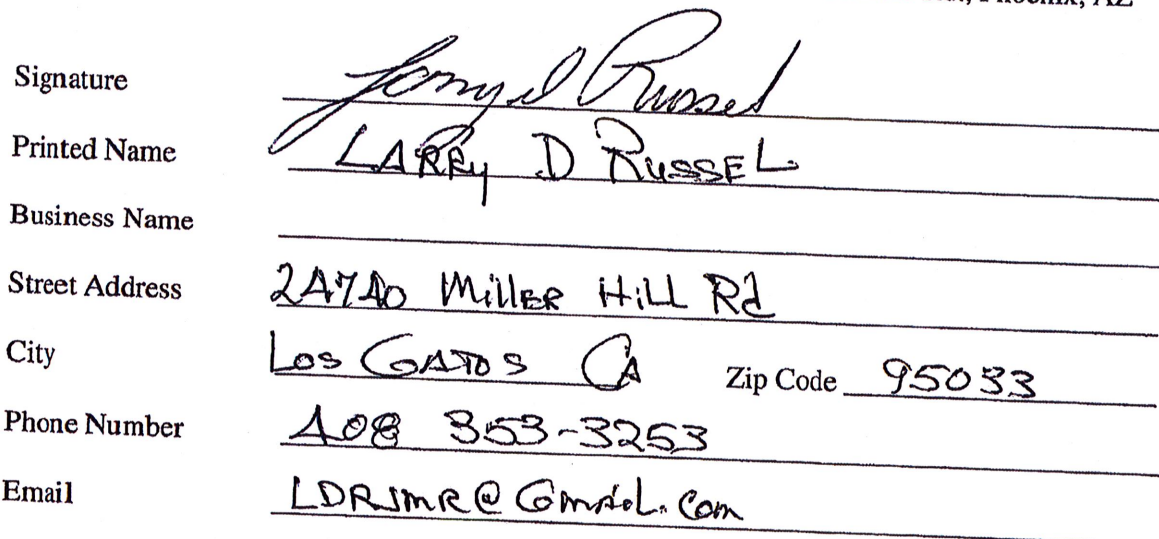 Phoenix, AZ
Signature Larry D Russel
Printed Name LARRy D RussEL
Business Name
Street Address 24740 MillER HiLL Rd
City Los GATOS CA Zip Code 95033
Phone Number 408 353-3253
Email LDRJMR@Gmail.Com